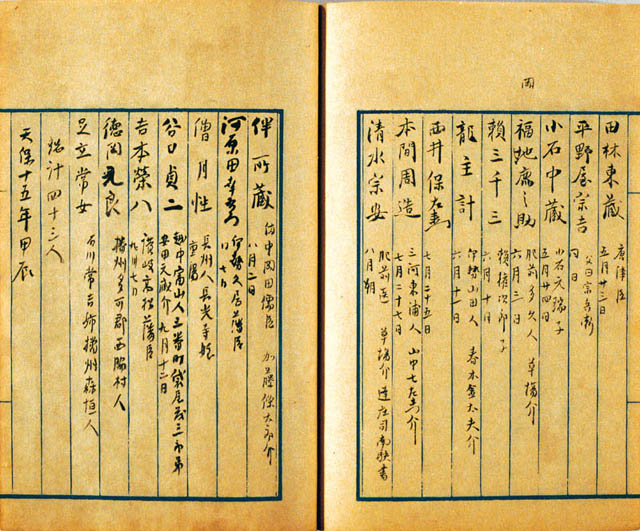 岡
田林東蔵 唐津臣 五月廿三日
平野屋宗吉 父曰宗兵衛 同日
小石中蔵 小石元瑞子 五月廿四日
福地廉之助 肥前多久人 草場介 六月三日
頼三千三 頼権次郎子 六月十日
龍主計 伊勢山田人 春木隼太夫介 六月十一日
西井保 七月二十五日
本間周造 三河東浦人 山中七左介 七月二十七日
清水宗安 肥前医 草場介 八月朔
伴所蔵 備中岡田儒臣 加藤 介 八月二日
河原田 伊勢久居藩臣 八月七日
僧月性 長州人 長光寺
谷口貞二 越中富山人 三番町 三郎弟 安田元蔵介 九月十二日
吉本榮八 讃岐高松藩臣 九月廿七日
徳岡元良 播州多可郡西脇村人
足立常女 石川常吉姉 播州森垣人
惣計四十三人
天保十五年甲辰